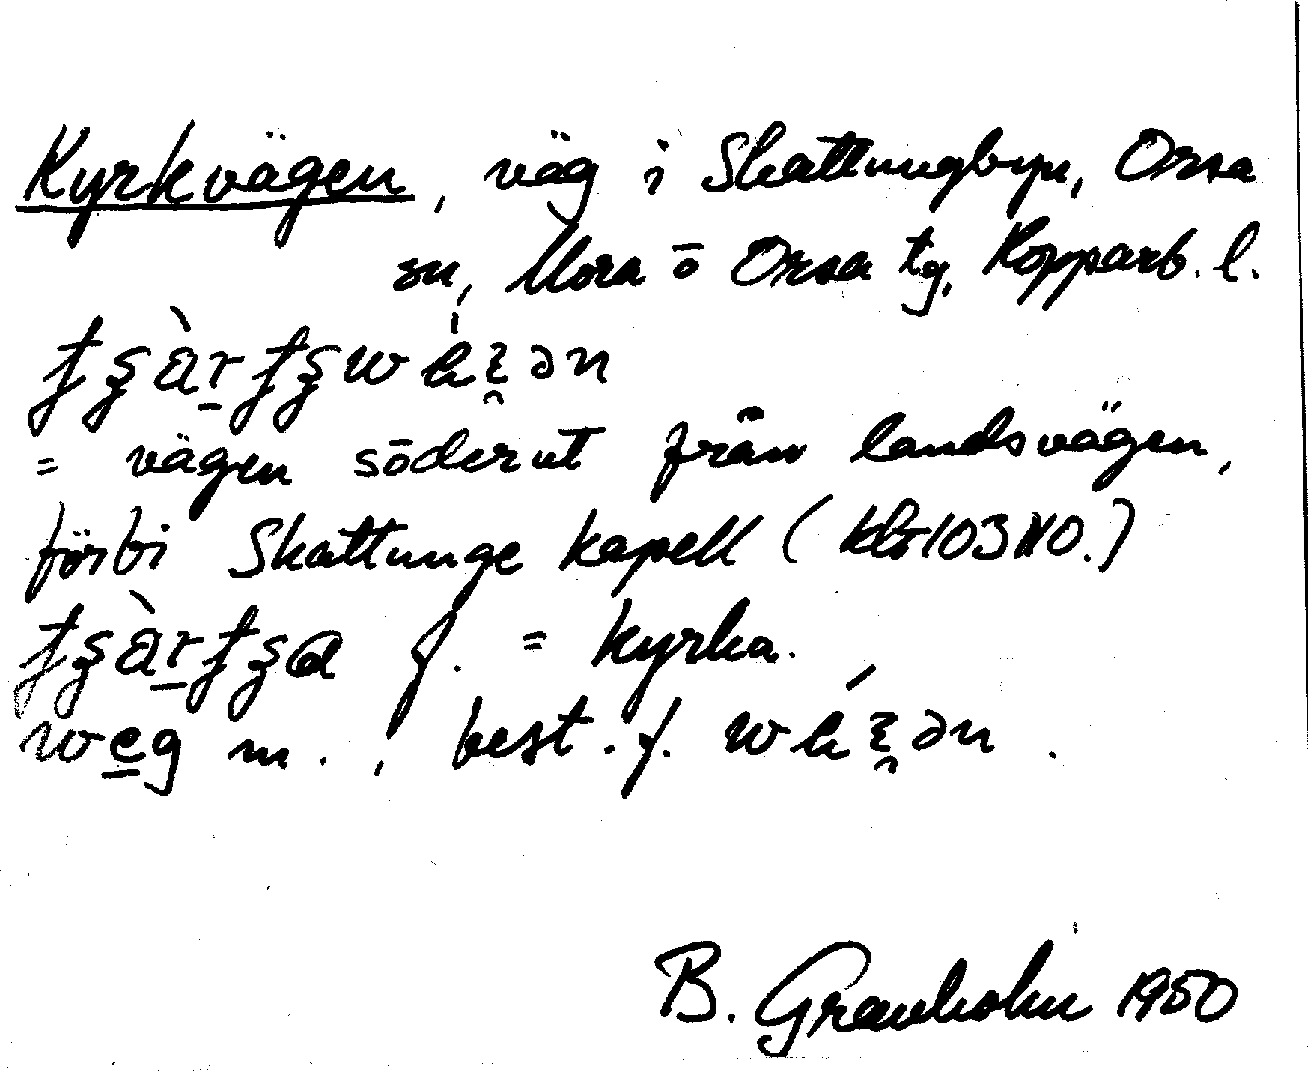 Kyrkvägen, väg i Skattungbyn, Orsa
sn, Mora o Orsa tg, Kopparb. l.
= vägen söderut från landsvägen,
förbi Skattunge kapell (
f. = kyrka.
weg m., best. f.
B. Granholm 1950